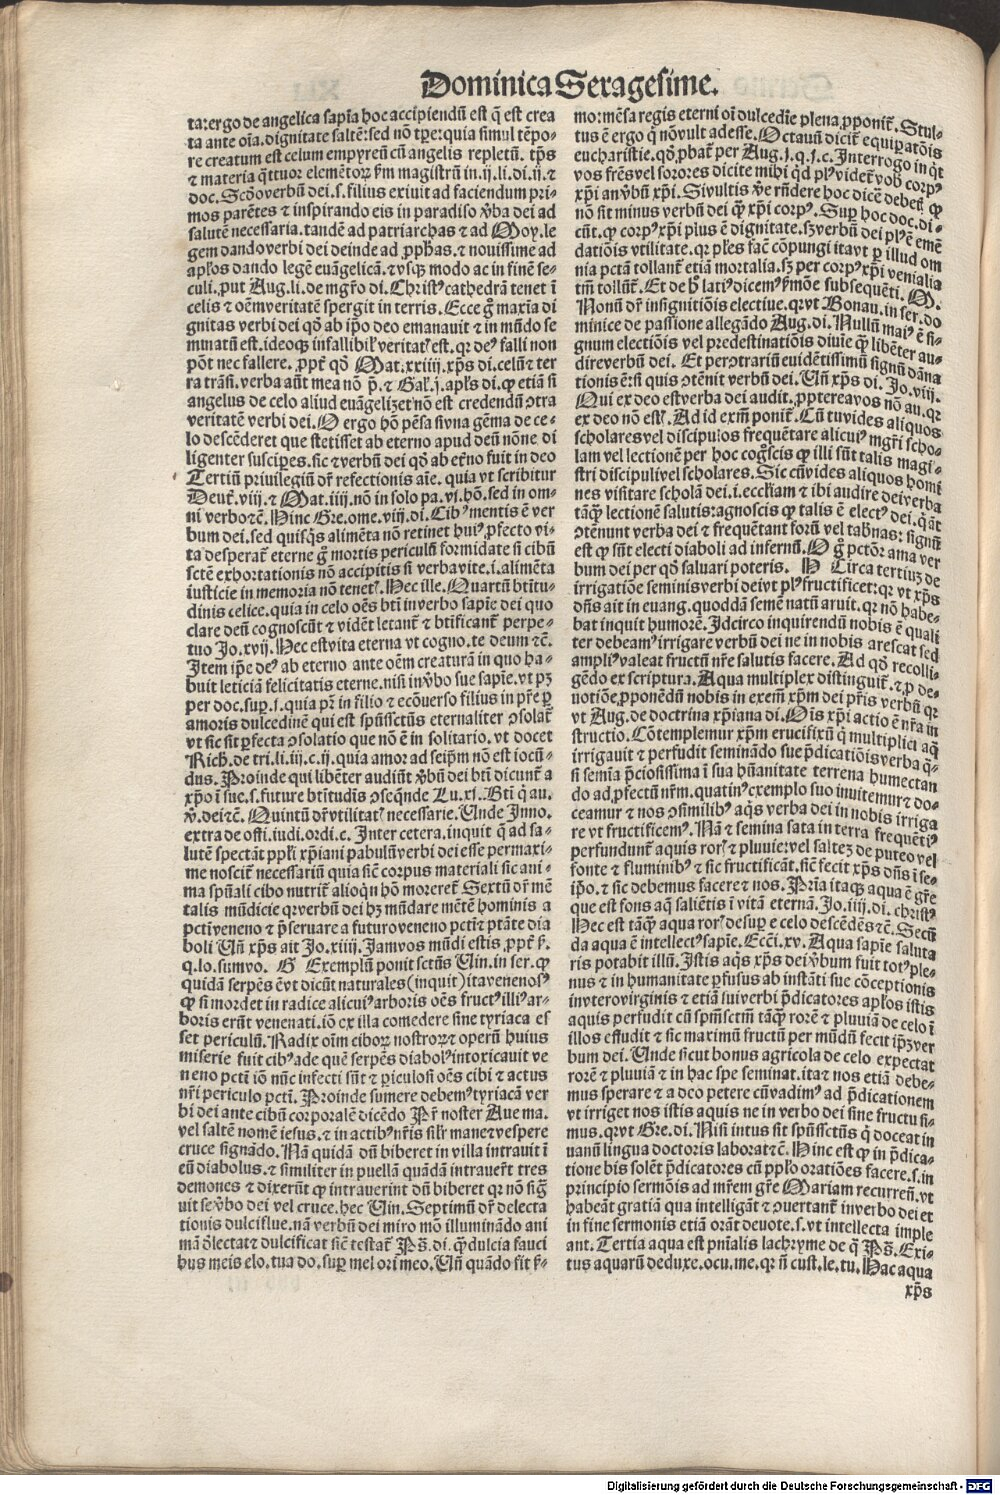 Dominica Sexagesime.
ta: ergo de angelica sapīa hoc accipiendū est q̄ est crea
ta ante oīa. dignitate saltē: sed nō tp̄e: quia simul tēpo-
re creatum est celum empyreū cū angelis repletū. tp̄s
⁊ materia q̄ttuor elemētoꝝ ẜm magistrū in .ij. li. di. ij. ⁊
doc. Scd̄o verbū dei .s. filius exiuit ad faciendum pri-
mos parētes ⁊ inspirando eis in paradiso v̄ba dei ad
salutē necessaria. tandē ad patriarchas ⁊ ad Moy. le
gem dando verbi dei deinde ad ꝓph̄as. ⁊ nouissime ad
apl̄os dando legē euāgelicā. ⁊ vsqꝫ modo ac in finē se-
culi. ꝓut Aug. li. de mgr̄o di. Christꝰ cathedrā tenet ī
celis ⁊ oēm veritatē spergit in terris. Ecce gͦ maxīa di
gnitas verbi dei qd̄ ab ip̄o deo emanauit ⁊ in mūdo se
minatū est. ideoqꝫ infallibilꝭ veritatꝭ est. qꝛ deꝰ falli non
pōt nec fallere. ꝓpt̄ qd̄ Mat. xxiiij. xp̄s di. celū ⁊ ter
ra trāsi. verba aūt mea nō p̄. ⁊ Gal̄. j. apl̄s di. ꝙ etiā si
angelus de celo aliud euāgelizet nō est credendū ↄtra
veritatē verbi dei. O ergo hō pēsa si vna gēma de ce-
lo descēderet que stetisset ab eterno apud deū nōne di
ligenter susciꝑes. sic ⁊ verbū dei qd̄ ab et̄no fuit in deo
Tertiū priuilegiū dr̄ refectionis aīe. quia vt scribitur
Deut̄. viij. ⁊ Mat. iiij. nō in solo pa. vi. hō. sed in om-
ni verbo ⁊c̄. Hinc Gre. ome. viij. di. Cibꝰ mentis ē ver
bum dei. sed quisq̄s alimēta nō retinet huiꝰ ꝓfecto vi-
ta desperat̄ eterne gͦ mortis periculū formidate si cibū
sctē exhortationis nō accipitis si verba vite .i. alimēta
iusticie in memoria nō tenetꝭ. Hec ille. Quartū btītu-
dinis celice. quia in celo oēs btī in verbo sapīe dei quo
clare deū cognoscūt ⁊ vidēt letant̄ ⁊ btīficant̄ perpe-
tuo Jo. xvij. Hec est vita eterna vt cogno. te deum ⁊c̄.
Item ip̄e deꝰ ab eterno ante oēm creaturā in quo ha-
buit leticiā felicitatis eterne. nisi in v̄bo sue sapīe. vt pꝫ
per doc. suꝑ. j. quia pr̄ in filio ⁊ ecōuerso filius in pr̄e ꝑ
amoris dulcedinē qui est spūssctūs eternaliter ↄsolat̄
vt sic sit ꝑfecta ↄsolatio que nō ē in solitario. vt docet
Rich. de tri. li. iij. c. ij. quia amor ad seip̄m nō est iocū-
dus. Proinde qui libēter audiūt v̄bū dei btī dicunt̄ a
xp̄o ī sue .s. future btītudīs ↄseq̄nde Lu. xi. Btī q̄ au.
v̄. dei ⁊c̄. Quintū dr̄ vtilitatꝭ necessarie. Unde Inno.
extra de offi. iudi. ordi. c. Inter cetera. inquit q̄ ad sa-
lutē spectāt ppl̄i xp̄iani pabulū verbi dei esse permaxi-
me noscit̄ necessariū quia sic̄ corpus materiali sic ani-
ma spūali cibo nutrit̄ alioqn̄ hō moreret̄ Sextū dr̄ mē
talis mūdicie qꝛ verbū dei hꝫ mūdare mētē hominis a
pct̄i veneno ⁊ p̄seruare a futuro veneno pct̄i ⁊ ptāte dia
boli Uñ xp̄s ait Jo. xiiij. Iam vos mūdi estis ꝓpt̄ ẜ.
q. lo. sum vo. G Exemplū ponit sctūs Uin. in ser. ꝙ
quidā serpēs ē vt dicūt naturales (inquit) ita venenosꝰ
ꝙ si mordet in radice alicuiꝰ arboris oēs fructꝰ illiꝰ ar-
boris erūt venenati. iō ex illa comedere sine tyriaca es
set periculū. Radix oīm ciboꝝ nostroꝝ ⁊ operū huius
miserie fuit cibꝰ ade quē serpēs diabolꝰ intoxicauit ve
neno pct̄i iō nūc infecti sūt ⁊ ꝑiculosi oēs cibi ⁊ actus
nr̄i periculo pct̄i. Proinde sumere debemꝰ tyriacā ver
bi dei ante cibū corporalē dicēdo Pr̄ noster Aue ma.
vel saltē nomē iesus. ⁊ in actibꝰ nr̄is silr̄ mane ⁊ vespere
cruce signādo. Nā quidā dū biberet in villa intrauit ī
eū diabolus. ⁊ similiter in puellā quādā intrauer̄t tres
demones ⁊ dixerūt ꝙ intrauerint dū biberet qꝛ nō sig̅
uit se v̄bo dei vel cruce. hec Uin. Septimū dr̄ delecta
tionis dulciflue. nā verbū dei miro mō illuminādo ani
mā ōlectat ⁊ dulcificat sic̄ testat̄ Ps̄. di. q̄ dulcia fauci
bus meis elo. tua do. suꝑ mel ori meo. Uñ quādo sit ẜ-
mo: mēsa regis eterni oī dulcedīe plena ꝓponit̄. Stul-
tus ē ergo q̄ nō vult adesse. Octauū dicit̄ equiꝑatōis
eucharistie. qd̄ ꝓbat̄ per Aug. j. q. j. c. Interrogo inq̄t
vos fr̄es vel sorores dicite mihi qd̄ plꝰ videt̄ vob̄ corpꝰ
xp̄i an v̄bū xp̄i. Si vultis v̄e rn̄dere hoc dicē debeꝭ ꝙ
nō sit minus verbū dei q̄ꝫ xp̄i corpꝰ. Suꝑ hoc doc. di-
cūt. ꝙ corpꝰ xp̄i plus ē dignitate. sꝫ verbū dei plꝰ ē emē
datiōis vtilitate. qꝛ pl̄es fac̄ cōpungi ita vt ꝑ illud om
nia pctā tollant̄ etiā mortalia. sꝫ per corpꝰ xp̄i venialia
tm̄ tollūt̄. Et de h̄ latiꝰ dicemꝰ ẜmōe subsequēti. M.
Nonū dr̄ insignitiōis electiue. qꝛ vt Bonau. in ser. do
minice de passione allegādo Aug. di. Nullū maiꝰ ē si-
gnum electiōis vel predestinatiōis diuīe q̄ꝫ libēter au-
dire verbū dei. Et per ↄtrariū euidētissimū signū dāna
tionis ē: si quis ↄtēnit verbū dei. Uñ xp̄s di. Jo. viij.
Qui ex deo est verba dei audit. ꝓpterea vos nō au. qꝛ
ex deo nō estꝭ. Ad id exm̄ ponit̄. Cū tu vides aliquos
scholares vel discipulos frequētare alicuiꝰ mgr̄i scho-
lam vel lectionē per hoc cogͦscis ꝙ illi sūt talis magi-
stri discipuli vel scholares. Sic cū vides aliquos homi
nes visitare scholā dei .i. eccl̄iam ⁊ ibi audire dei verba
tāq̄ꝫ lectionē salutis: agnoscis ꝙ talis ē electꝰ dei. q̄ āt
ↄtēnunt verba dei ⁊ frequētant forū vel tab̄nas: signū
est ꝙ sūt electi diaboli ad infernū. O gͦ pctōr ama ver
bum dei per qd̄ saluari poteris. H Circa tertiū de
irrigatiōe seminis verbi dei vt plꝰ fructificet: qꝛ vt xp̄s
dn̄s ait in euang. quoddā semē natū aruit. qꝛ nō habe-
bat inquit humorē. Idcirco inquirendū nobis ē quali
ter debeamꝰ irrigare verbū dei ne in nobis arescat sed
ampliꝰ valeat fructū nr̄e salutis facere. Ad qd̄ recolli-
gēdo ex scriptura. Aqua multiplex distinguit̄. ⁊ ꝓ de-
uotiōe, ꝓponēdū nobis in exem̄ xp̄m dei pr̄is verbū qꝛ
vt Aug. de doctrina xp̄iana di. Oīs xp̄i actio ē nr̄a in
structio. Cōtemplemur xp̄m crucifixū q̄ multiplici aq̄
irrigauit ⁊ perfudit seminādo sue p̄dicatiōis verba q̄-
si semīa p̄ciosissima ī sua hūanitate terrena humectan
do ad ꝓfectū nr̄m. quatinꝰ exemplo suo inuitemur ⁊ do-
ceamur ⁊ nos ↄsimilibꝰ aq̄s verba dei in nobis irriga
re vt fructificemꝰ. Nā ⁊ semina sata in terra frequētiꝰ
perfundunt̄ aquis rorꝭ ⁊ pluuie: vel saltez de puteo vel
fonte ⁊ fluminibꝰ ⁊ sic fructificāt. sic̄ fecit xp̄s dn̄s ī se-
ip̄o. ⁊ sic debemus facere ⁊ nos. Prīa itaqꝫ aqua ē gr̄e
que est fons aq̄ saliētis ī vitā eternā. Jo. iiij. di. christꝰ
Hec est tāq̄ꝫ aqua rorꝭ desuꝑ e celo descēdēs ⁊c̄. Secū
da aqua ē intellectꝰ sapīe. Ecc̄i. xv. Aqua sapīe saluta
ris potabit illū. Istis aq̄s xp̄s dei v̄bum fuit totꝰ ple-
nus ⁊ in humanitate ꝑfusus ab instāti sue cōceptionis
in vtero virginis ⁊ etiā sui verbi p̄dicatores apl̄os istis
aquis perfudit cū spm̄sctm̄ tāq̄ꝫ rorē ⁊ pluuiā de celo ī
illos effudit ⁊ sic maximū fructū per mūdū fecit ip̄ꝫ ver
bum dei. Unde sicut bonus agricola de celo expectat
rorē ⁊ pluuiā ⁊ in hac spe seminat. ita ⁊ nos etiā debe-
mus sperare ⁊ a deo petere cū vadimꝰ ad p̄dicationem
vt irriget nos istis aquis ne in verbo dei sine fructu si-
mus. qꝛ vt Gre. di. Nisi intus sit spūssctūs q̄ doceat in
uanū lingua doctoris laborat ⁊c̄. Hinc est ꝙ in p̄dica-
tione bis solēt p̄dicatores cū ppl̄o oratiōes facere .s. in
principio sermōis ad mr̄em gr̄e Mariam recurrēn̄. vt
habeāt gratiā qua intelligāt ⁊ ↄuertant̄ in verbo dei et
in fine sermonis etiā orāt deuote .s. vt intellecta imple
ant. Tertia aqua est pnīalis lachryme de q̄ Ps̄. Exi-
tus aquarū deduxe. ocu. me. qꝛ n̄ cust. le. tu. Hac aqua
xp̄s
Digitalisierung gefördert durch die Deutsche Forschungsgemeinschaft - DFG